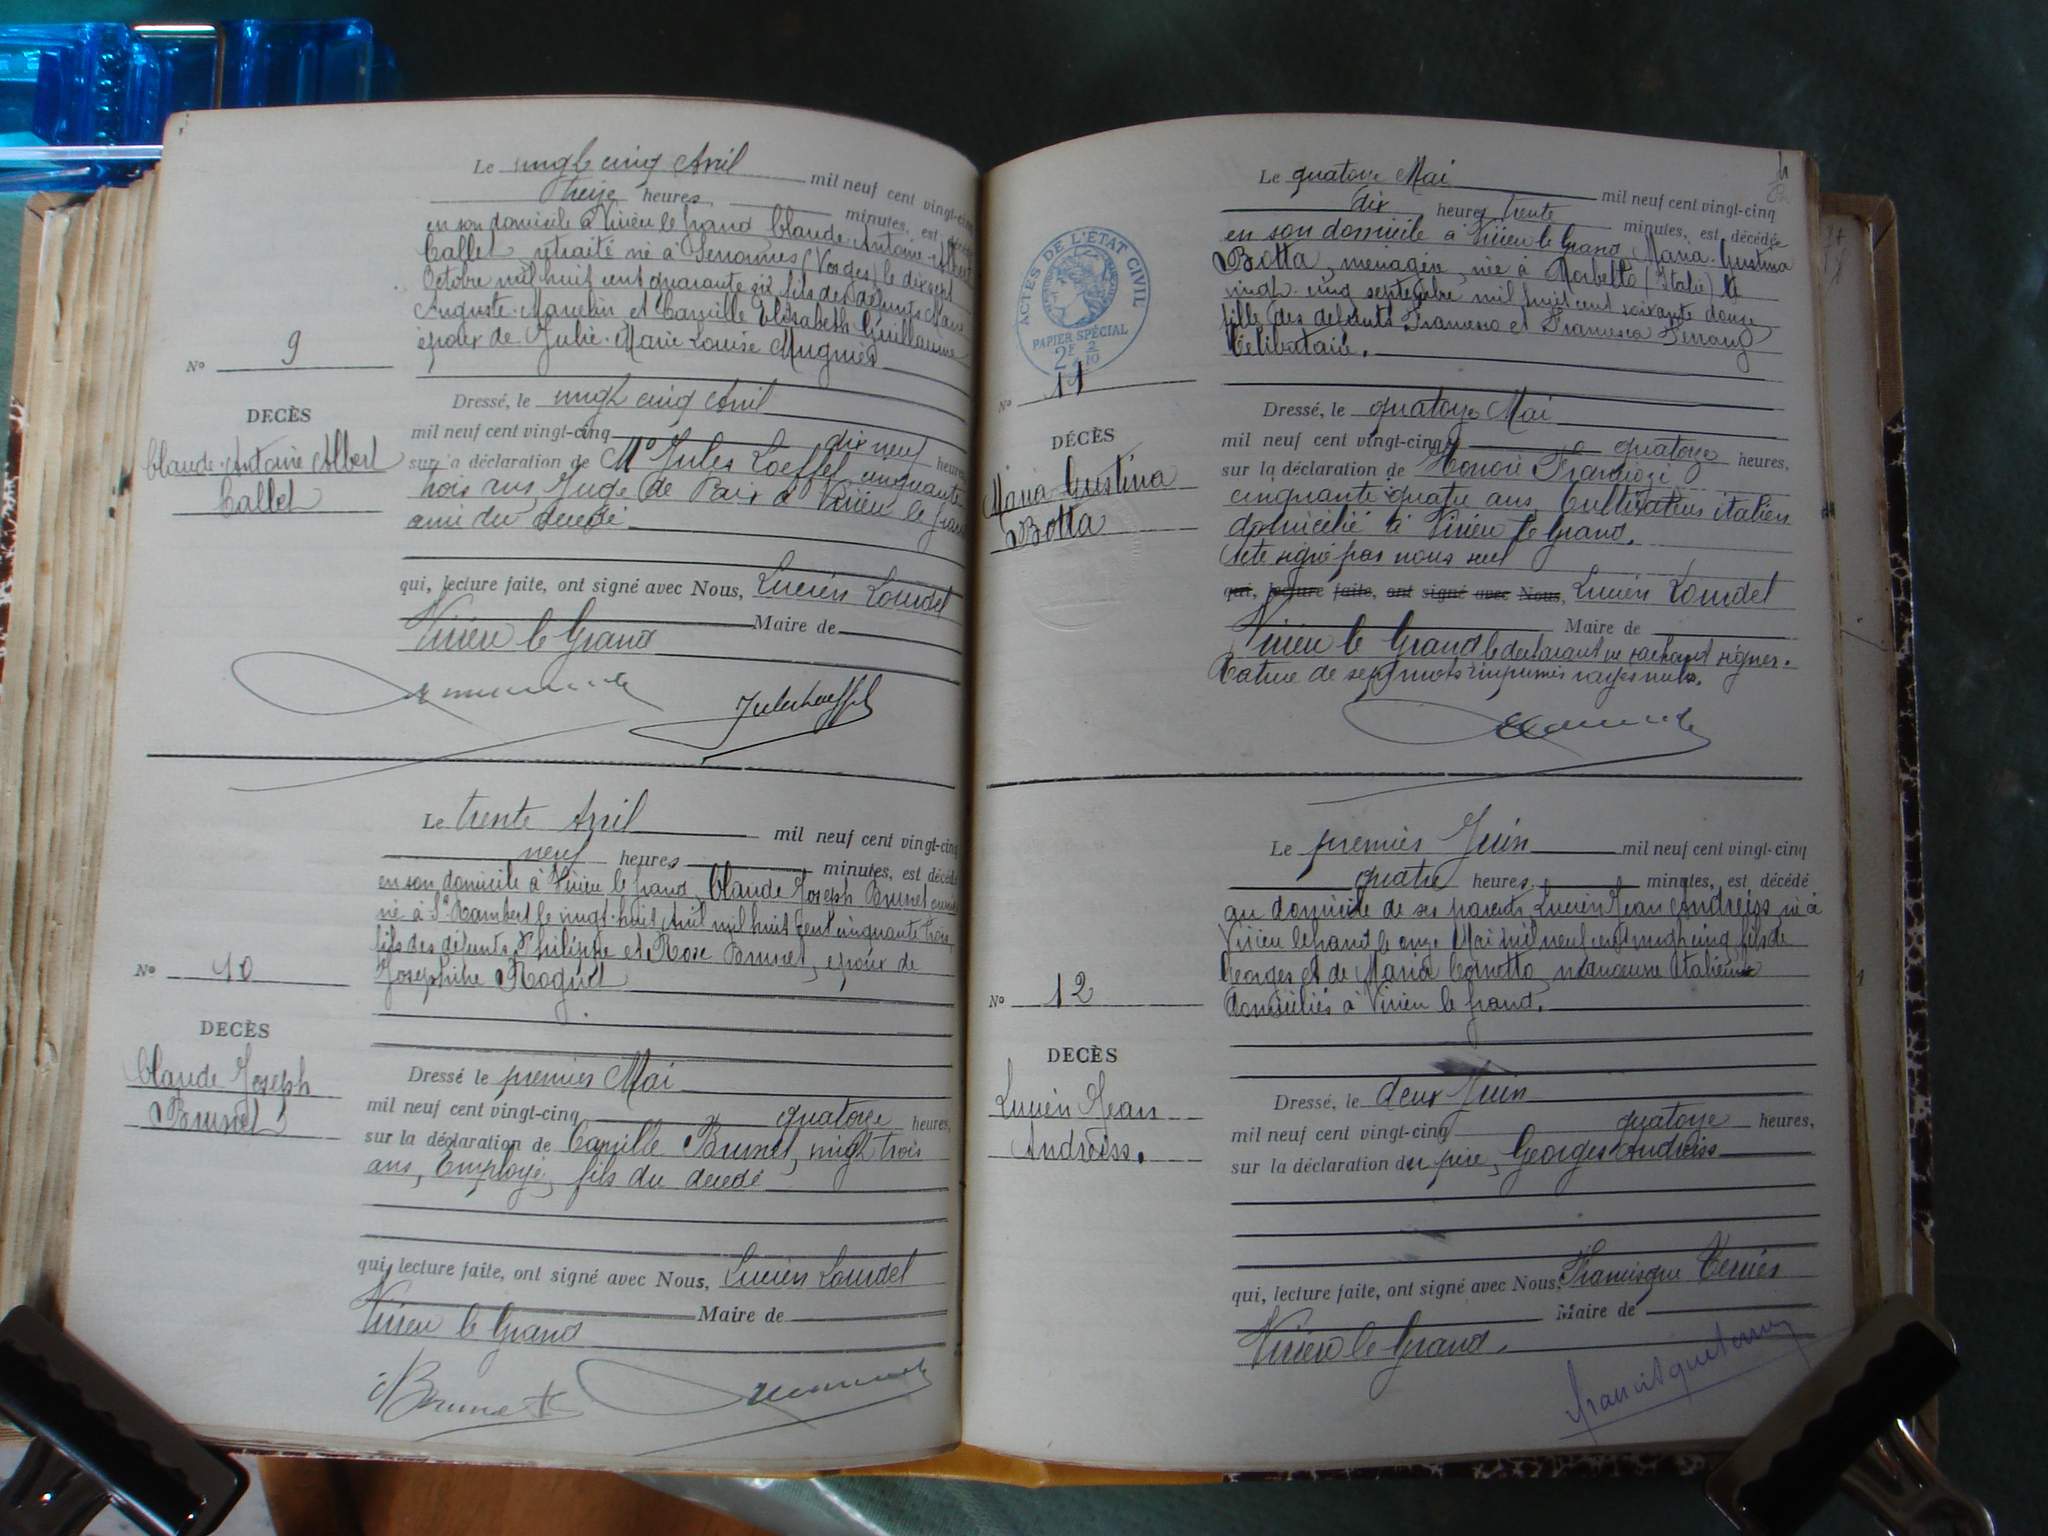 Le vingt cinq Avril mil neuf cent vingt-cinq
Treize heures, minutes, est décédé
en son domicile à Virieu le Grand Claude Antoine Albert
Callet, retraité né à Senonnes (Vosges) le dix sept
Octobre mil huit cent quarante six fils des défunts
Auguste Marcelin et Camille Elisabeth Guillaume
époux de Julie Marie Louise Mugnier
No 9
DECÈS
Claude Antoine Albert
Callet
Dressé, le vingt cinq Avril
mil neuf cent vingt-cinq dix neuf heures
sur la déclaration de Mr Jules Loeffel cinquante
trois ans, Juge de Paix à Virieu le Grand
ami du décédé
qui, lecture faite, ont signé avec Nous, Lucien Lourdel
Maire de
Virieu le Grand
Jules Loeffel
Le trente Avril mil neuf cent vingt-cinq
neuf heures minutes, est décédé
en son domicile à Virieu le Grand, Claude Joseph Brunet
né à St Rambert le vingt huit Avril mil huit cent cinquante trois
fils des défunts Philippe et Rose Brunet, époux de
Josephine Roguet
No 10
DECÈS
Claude Joseph
Brunet
Dressé le premier Mai
mil neuf cent vingt-cinq quatorze heures,
sur la déclaration de Camille Brunet, vingt trois
ans, Employé, fils du décédé
qui, lecture faite, ont signé avec Nous, Lucien Lourdel
Maire de
Virieu le Grand
Brunet
Le quatorze Mai mil neuf cent vingt-cinq
dix heures trente minutes, est décédée
en son domicile à Virieu le Grand Maria Gustina
Botta, ménagère, née à Morbello (Italie) le
vingt cinq septembre mil huit cent soixante douze
fille des défunts Francesco et Francesca
Célibataire.
ACTES DE L'ÉTAT CIVIL
PAPIER SPÉCIAL
2F 2/10
No 11
DÉCÈS
Maria Gustina
Botta
Dressé, le quatorze Mai
mil neuf cent vingt-cinq quatorze heures,
sur la déclaration de Honoré
cinquante quatre ans, Cultivateur italien
domicilié à Virieu le Grand.
Acte signé par nous seul
qui, lecture faite, ont signé avec Nous, Lucien Lourdel
Maire de
Virieu le Grand le déclarant ne sachant signer.
Rature de sept mots imprimés rayés nuls.
Le premier Juin mil neuf cent vingt-cinq
quatre heures, minutes, est décédé
au domicile de ses parents, Lucien Jean Andreiss, né à
Virieu le Grand le onze Mai mil neuf cent vingt cinq fils de
Georges et de Maria, manoeuvre italiens
domiciliés à Virieu le Grand.
No 12
DECÈS
Lucien Jean
Andreiss.
Dressé, le deux Juin
mil neuf cent vingt-cinq quatorze heures,
sur la déclaration du père, Georges Andreiss
qui, lecture faite, ont signé avec Nous, Francisque Terrier
Maire de
Virieu le Grand.